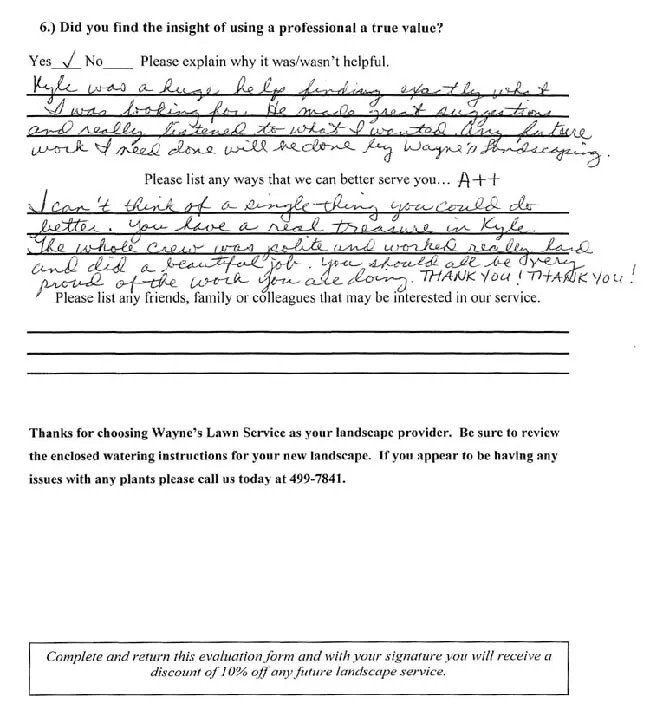 6.) Did you find the insight of using a professional a true value?
Yes ✓ No____ Please explain why it was/wasn't helpful.
Kyle was a huge help finding exactly what
I was looking for. He made great suggestions
and really listened to what I wanted. Any future
work I need done will be done by Wayne's landscaping.
Please list any ways that we can better serve you… A++
I can't think of a single thing you could do
better. You have a real treasure in Kyle.
The whole crew was polite and worked really hard
and did a beautiful job. You should all be very
proud of the work you are doing. THANK YOU! THANK YOU!
Please list any friends, family or colleagues that may be interested in our service.
Thanks for choosing Wayne's Lawn Service as your landscape provider. Be sure to review
the enclosed watering instructions for your new landscape. If you appear to be having any
issues with any plants please call us today at 499-7841.
Complete and return this evaluation form and with your signature you will receive a
discount of 10% off any future landscape service.